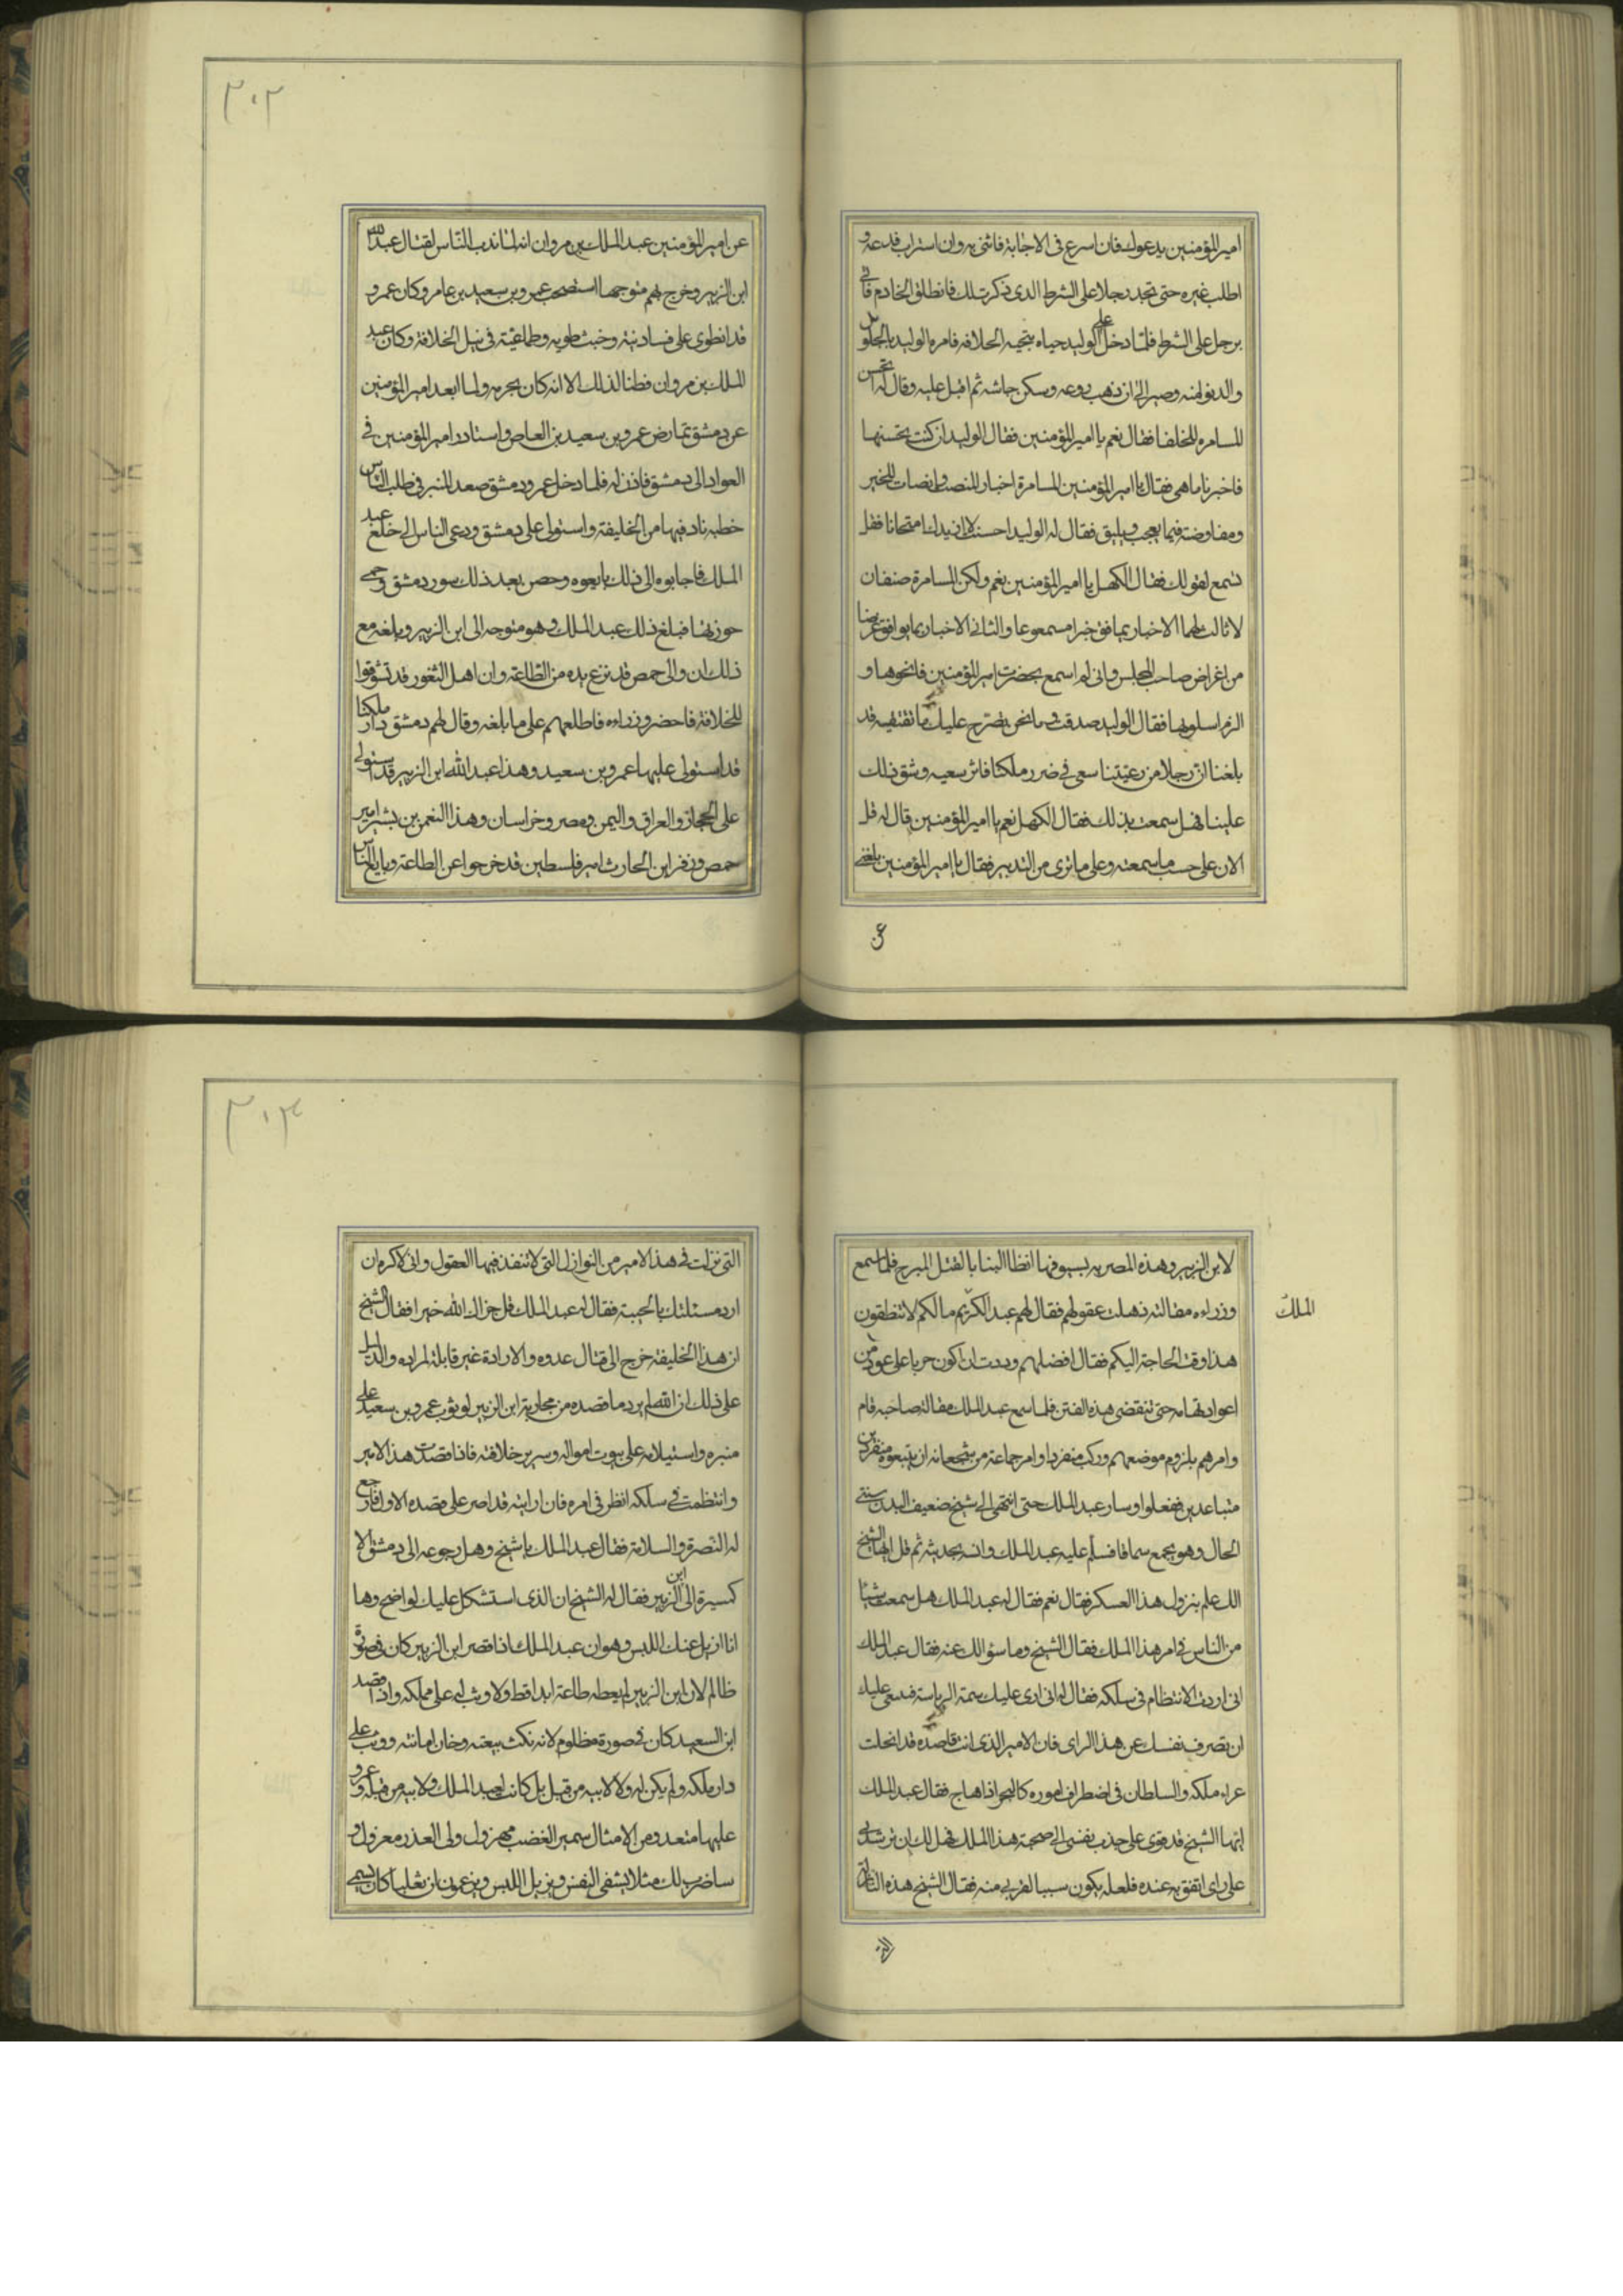 امير المؤمنين يدعوك فان اسرع فى الاجابة فاتنى به وان استراب فدعه و
اطلب غيره حتى تجد رجلا على الشرط الذى ذكرت لك فانطلق الخادم فاتى
برجل على الشرط فلما دخل على الوليد حياه بتحيه الخلافه فامره الوليد بالجلوس
والدنو منه وصبر الى ان ذهب روعه وسكن جاشه ثم اقبل عليه وقال له اتحسن
المسامره للخلفا فقال نعم يا امير المؤمنين فقال الوليد ان كنت تحسنها
فاخبرنا ما هى فقال يا امير المؤمنين المسامرة اخبار لمنصت وانصات لمخبر
ومفاوضة فيما يعجب ويليق فقال له الوليد احسنت لا ازيدك امتحانا فقل
نسمع لقولك فقال الكهل يا امير المؤمنين نعم ولكن المسامرة صنفان
لا ثالث لهما الاخبار بما فوق خبرا مسموعا والثانى الاخبار بما يوافق غرضا
من اغراض صاحب المجلس وانى لم اسمع بحضرت امير المؤمنين فانحوها و
الزم اسلوبها فقال الوليد صدقت وها نحن نقترح عليك ما تقتفيه قد
بلغنا ان رجلا من رعيتنا سعى فى ضرر ملكنا فاثر سعيه وشق ذلك
علينا فهل سمعت بذلك فقال الكهل نعم يا امير المؤمنين قال له قل
الان على حسب ما سمعته وعلى ما ترى من التدبير فقال يا امير المؤمنين بلغنى
عن
٣٠٣
عن امير المؤمنين عبد الملك بن مروان انه لما ندب الناس لقتال عبد الله
ابن الزبير وخرج بهم متوجها استصحب عمرو بن سعيد بن عامر وكان عمرو
قد انطوى على فساد نية وخبث طويه وطماعية فى نيل الخلافة وكان عبد
الملك بن مروان فطنا لذلك الا انه كان يحرمه ولما ابعد امير المؤمنين
عن دمشق تمارض عمرو بن سعيد بن العاص واستاذن امير المؤمنين فى
العواد الى دمشق فاذن له فلما دخل عمرو دمشق صعد المنبر فى طلب الناس
خطبه ناد فيها من الخليفة واستولى على دمشق ودعى الناس الى خلع عبد
الملك فاجابوه الى ذلك بايعوه وحصن بعد ذلك سور دمشق وحمى
حوزتها فبلغ ذلك عبد الملك وهو متوجه الى ابن الزبير وبلغه مع
ذلك ان والى حمص قد نزع يده من الطاعة وان اهل الثغور قد تشوقوا
للخلافة فاحضر وزراءه فاطلعهم على ما بلغه وقال لهم دمشق دار ملكنا
قد استولى عليها عمرو بن سعيد وهذا عبد الله ابن الزبير قد استولى
على الحجاز والعراق واليمن ومصر وخراسان وهذا النعمن بن بشير امير
حمص وزفر ابن الحارث امير فلسطين قد خرجوا عن الطاعة وبايع الناس
لابن الزبير وهذه المصريه بسيوفها انظا الينا بالقتل المبرح فلما سمع
وزراءه مقالته ذهلت عقولهم فقال لهم عبد الكريم ما لكم لا تنطقون
الملك
هذا وقت الحاجة اليكم فقال افضلهم وددت ان اكون حربا على عود من
اعواد تهامه حتى تنقضى هذه الفتن فلما سمع عبد الملك مقالة صاحبه قام
وامرهم بلزوم موضعهم وركب منفردا وامر جماعة من شجعانه ان يتبعوه منفردين
متباعدين ففعلوا وسار عبد الملك حتى انتهى الى شيخ ضعيف البدن سيئ
الحال وهو يجمع سماقا فسلم عليه عبد الملك وانسه بحديثه ثم قل ايها الشيخ
الك علم بنزول هذا العسكر فقال نعم فقال له عبد الملك هل سمعت شيئا
من الناس فى امر هذا الملك فقال الشيخ وما سؤالك عنه فقال عبد الملك
انى اردت الانتظام فى سلكه فقال له انى ارى عليك سمة الرياسة فينبغى عليك
ان تصرف نفسك عن هذا الراى فان الامير الذى انت قاصده قد انحلت
عراء ملكه والسلطان فى اضطراب اموره كالبحر اذا هاج فقال عبد الملك
ايها الشيخ قد قوى على جذب نفسى الى صحبة هذا الملك فهل لك ان ترشدنى
على راى اتفق به عنده فلعله يكون سببا لقربى منه فقال الشيخ هذه النازلة
التى
٣٠٤
التى نزلت فى هذا الامير من النوازل التى لا تنفذ فيها العقول وانى لاكره ان
ارد مسئلتك بالخيبة فقال له عبد الملك قل جزاك الله خيرا فقال الشيخ
ان هذا الخليفة خرج الى قتال عدوه والارادة غير قابلة لمراده والدليل
على ذلك ان الله لم يرد ما قصده من محاربة ابن الزبير لوثوب عمرو بن سعيد على
منبره واستيلائه على بيوت امواله وسرير خلافته فاذا قصدت هذا الامير
وانتظمت فى سلكه انظر فى امره فان رايته قد اصر على قصده الاول فارجع
له النصرة والسلامة فقال عبد الملك يا شيخ وهل رجوعه الى دمشق الا
كسيرة الى ابن الزبير فقال له الشيخ ان الذى استشكل عليك لواضح وها
انا ازيل عنك اللبس وهو ان عبد الملك اذا قصر ابن الزبير كان فى صورة
ظالم لان ابن الزبير لم يعطه طاعة ابدا قط ولا وثب له على مملكه واذا قصد
ابن السعيد كان فى صورة مظلوم لانه نكث بيعته وخان امانته ووثب على
دار ملكه ولم يكن له ولا لابيه من قبل بل كانت لعبد الملك ولابيه من قبله وعمرو
عليها متعد ومن الامثال سمين الغضب مهزول ولى العذر معزول و
ساضرب لك مثلا يشفى النفس ويزيل اللبس ويزعمون ان ثعلبا كان يسمى